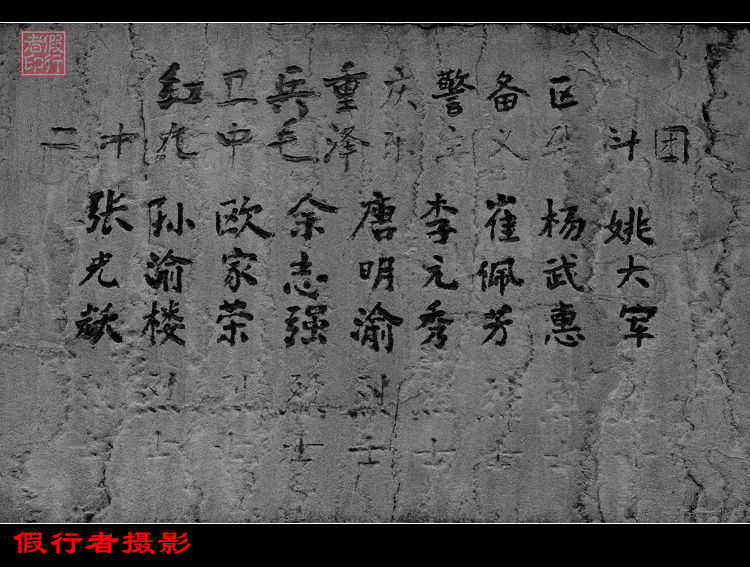 假行者印
红卫兵重庆警备区
二十九中毛泽东主义战斗团
张光耀烈士
孙渝楼烈士
欧家荣烈士
余志强烈士
唐明渝烈士
李元秀烈士
崔佩芳烈士
杨武惠烈士
姚大军
假行者摄影